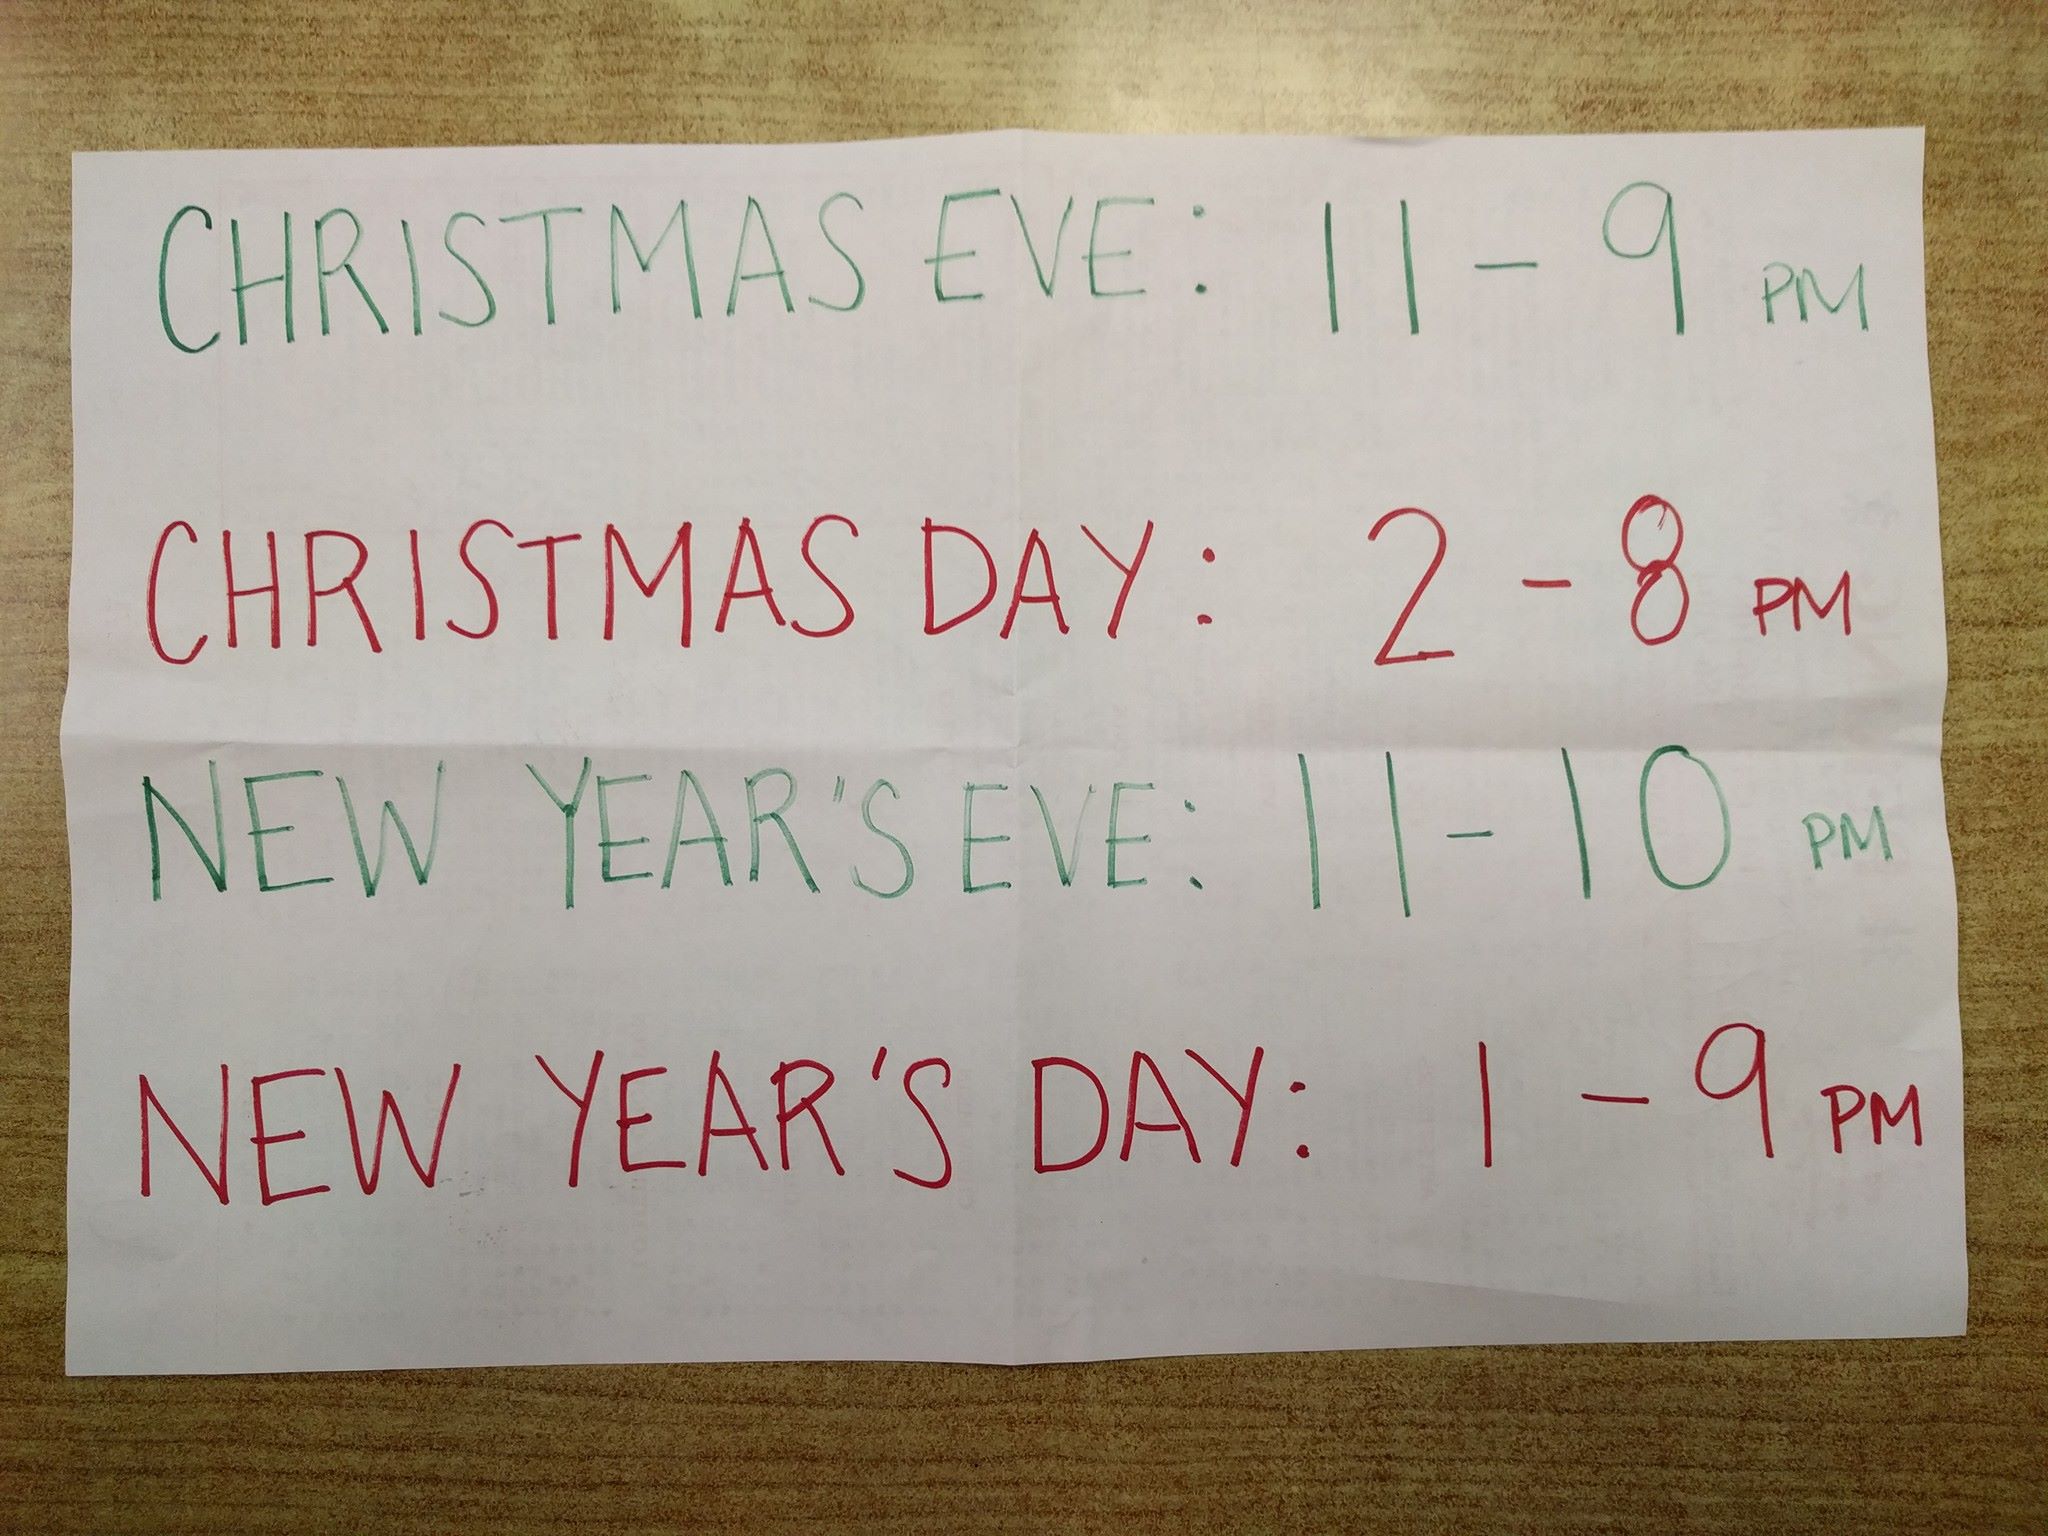 CHRISTMAS EVE: 11 - 9 PM
CHRISTMAS DAY: 2 - 8 PM
NEW YEAR'S EVE: 11 - 10 PM
NEW YEAR'S DAY: 1 - 9 PM